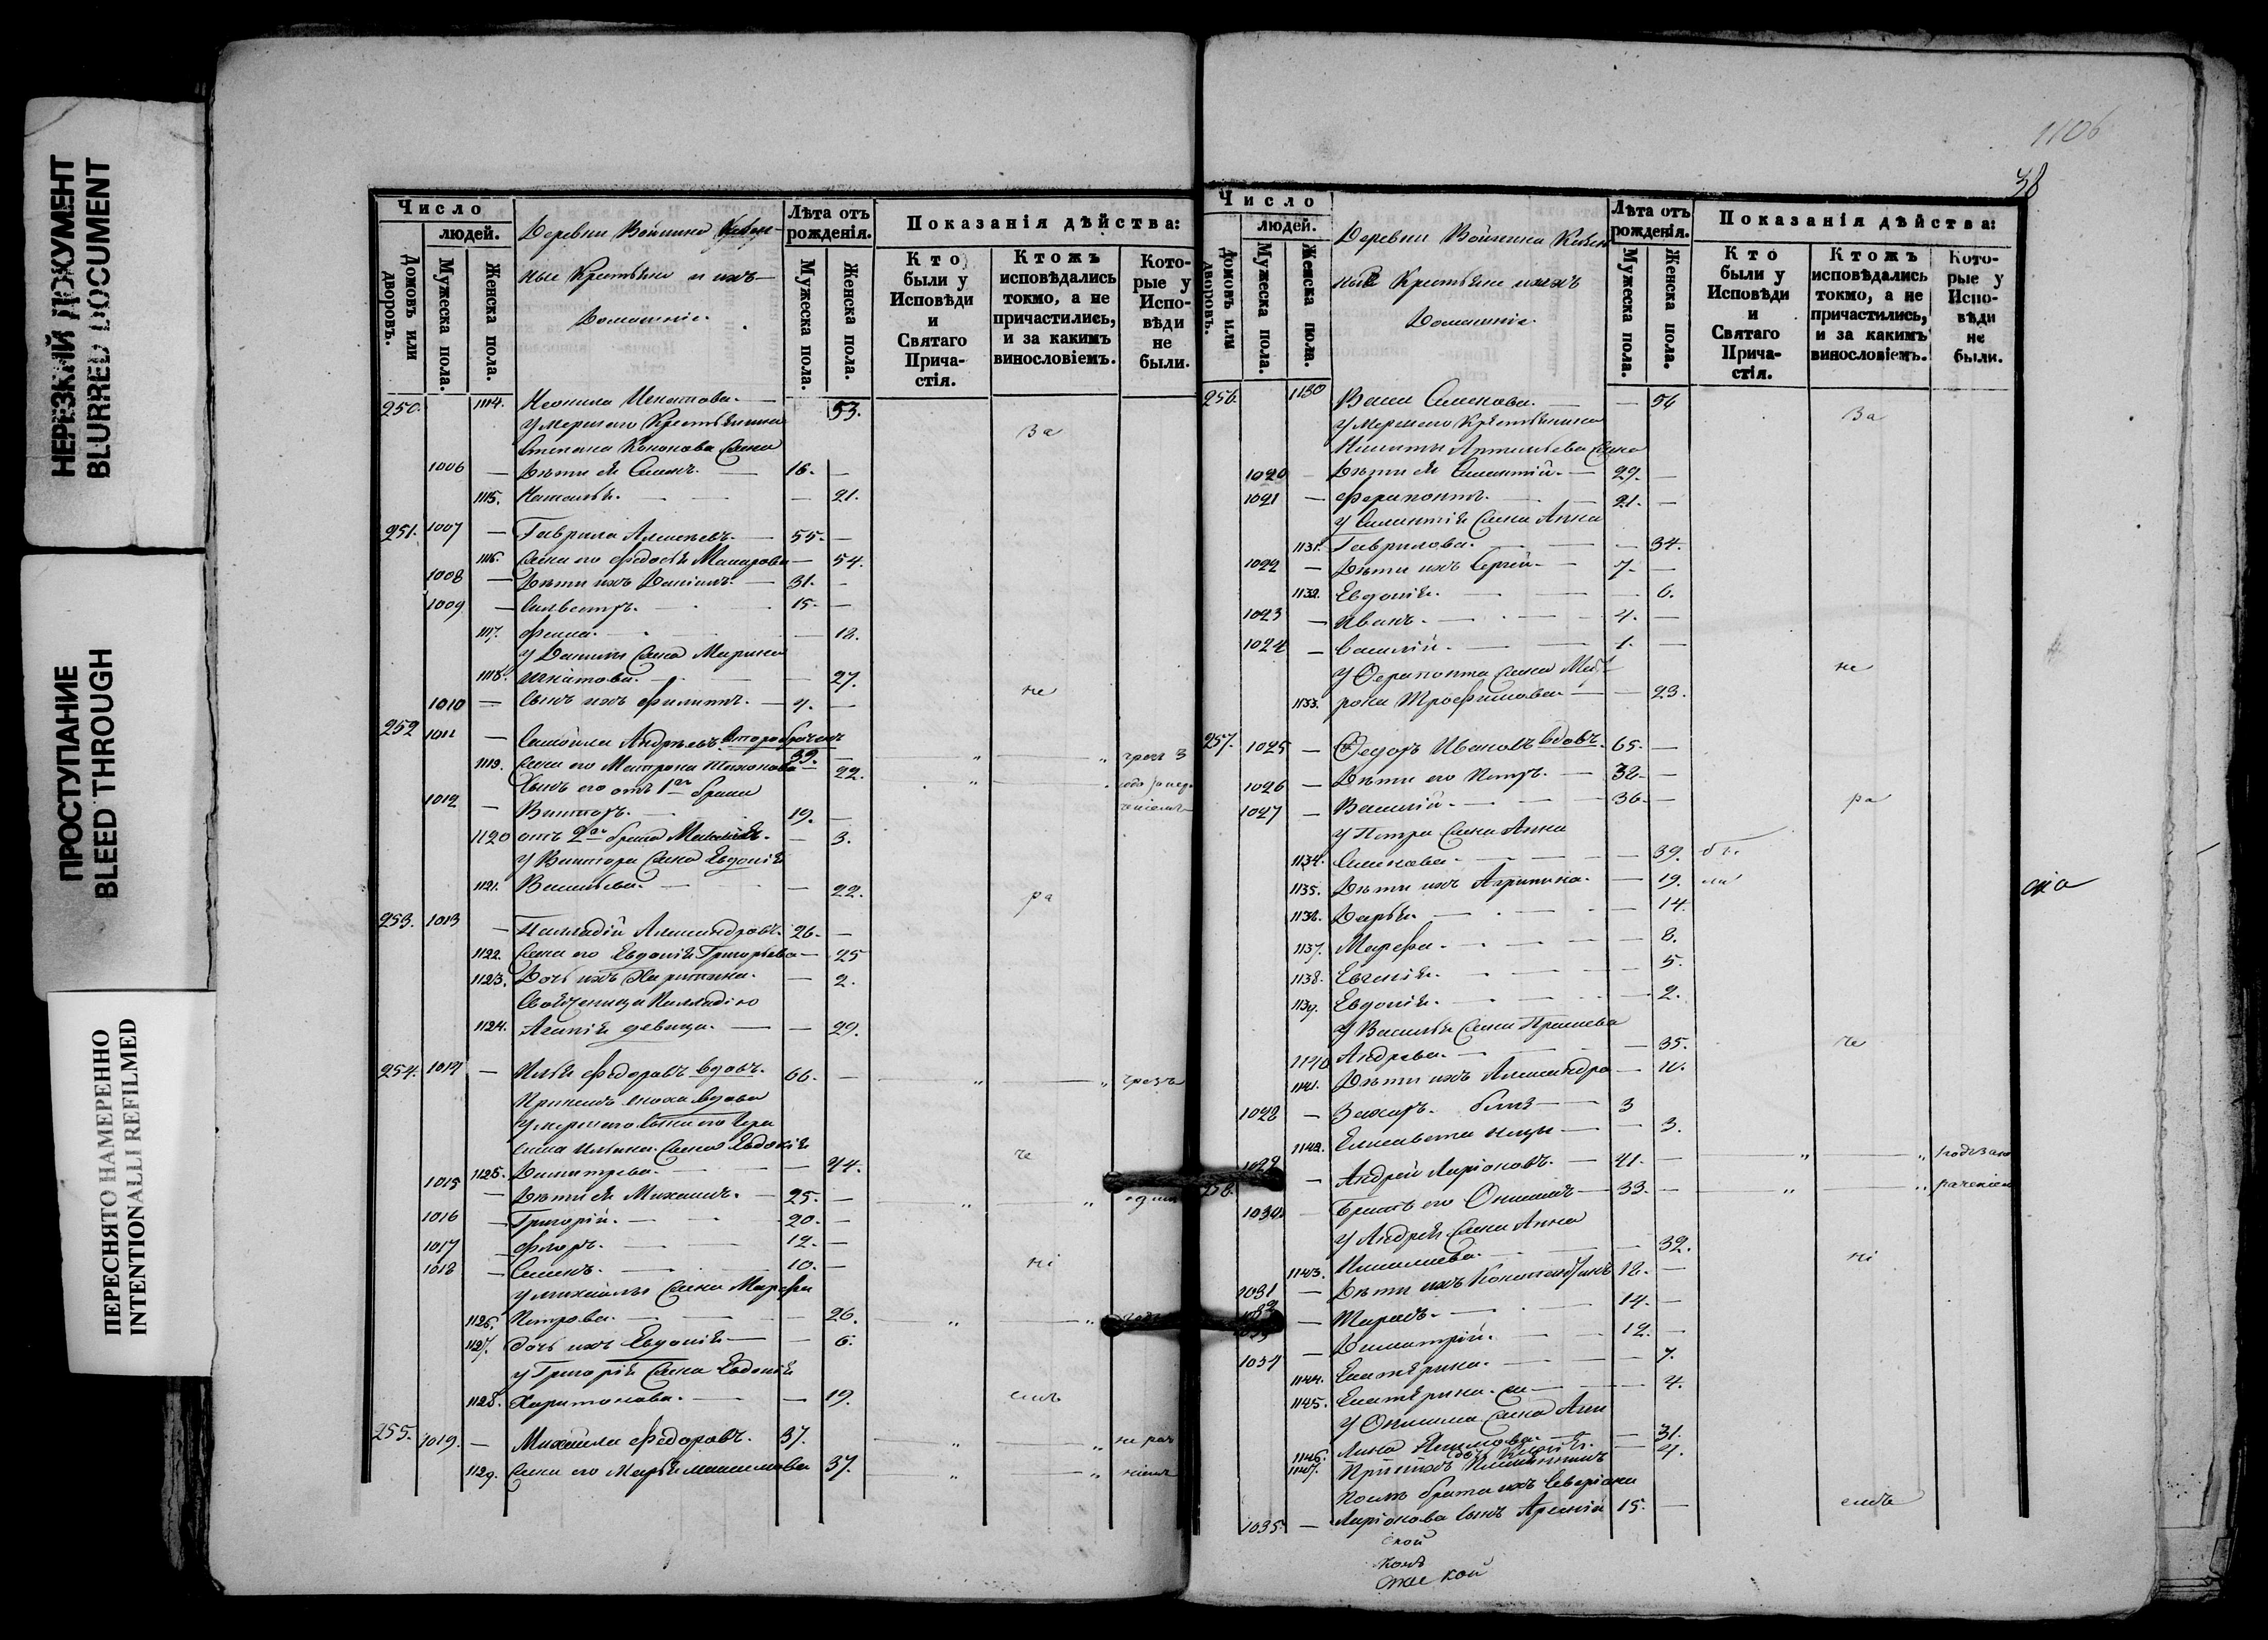 НЕРЕЗКИЙ ДОКУМЕНТ
BLURRED DOCUMENT
ПРОСТУПАНИЕ
BLEED THROUGH
ПЕРЕСНЯТО НАМЕРЕННО
INTENTIONALLI REFILMED
Число
людей.
Домовъ или дворовъ.
Мужеска пола.
Женска пола.
Деревни
ные Крестьяне и ихъ
Домашніе.
Лѣта отъ рожденія.
Мужеска пола.
Женска пола.
Показанія дѣйства:
Кто были у Исповѣди и Святаго Прича-стія.
Ктожъ исповѣдались токмо, а не причастились, и за какимъ винословіемъ.
Кото-рые у Испо-вѣди не были.
250. 1114. Неонила Игнатова. — 53.
умершаго Крестьянина За
Степана Кононова Жена
1006 — Дѣти ея Симонъ. — 16. —
1115. Наталья. — — 21.
251. 1007 — Гаврила Алексѣевъ. — 55. —
1116. Жена его Федосья Макарова — 54.
1008 — Дѣти ихъ Даніилъ. — 31. —
1009 — Сильвестръ. 15. —
1117. Фекла. — — 12.
у Даніила Жена Марина
1118. Игнатова. — — 27.
1010 — Сынъ ихъ Филиппъ. — 4. — не
252 1011 — Самойла Андреевъ Второбрачный 39. — чрезъ 3
1119. Жена его Матрона Тихонова — 22.
Сынъ его отъ 1го брака
1012 — Викторъ. — 19. —
1120 отъ 2го брака — 3.
у Виктора Жена Евдокія
1121. Васильева. — — 22. ра
253. 1013 — Палладій Александровъ. 26. —
1122. Жена его Евдокія Григорьева — 25
1123. Дочь ихъ Харитина. — 2.
Своячница Палладію
1124. Агапія девица. — — 29.
254. 1014 — Илья Федоровъ вдовъ. 66. — чрезъ
умершаго сына его
Ильина Жена Евдокія че
1125. Димитрева. — — 44.
1015 — Дѣти ея Михаилъ. — 25. —
1016 — Григорій. — 20. —
1017 — Флоръ. — 12. —
1018 — Симонъ. — 10. — ні
у Михаила Жена Марфа
1126. Петрова. — — 26.
1127. Дочь ихъ Евдокія — — 6.
у Григорія Жена Евдокія
1128. Харитонова. — — 19. емъ
255. 1019. — Михаила Федоровъ. 37. не рач
1129. Жена его Марья Максимова 37. ніемъ
1106
38
Число
людей.
Домовъ или дворовъ.
Мужеска пола.
Женска пола.
Деревни
ные Крестьяне и ихъ
Домашніе.
Лѣта отъ рожденія.
Мужеска пола.
Женска пола.
Показанія дѣйства:
Кто были у Исповѣди и Святаго Прича-стія.
Ктожъ исповѣдались токмо, а не причастились, и за какимъ винословіемъ.
Кото-рые у Испо-вѣди не были.
256. 1130 Васса Семенова. — — 54
умершаго Крестьянина За
Никиты Артемьева Жена
1020 — Дѣти ея Силантій. — 29. —
1021 — Ферапонтъ. — 21. —
у Силантія Жена Анна
1131. Гаврилова. — — 34.
1022 — Дѣти ихъ Сергій. — 7. —
1132. Евдокія. — — 6.
1023 — Иванъ. — 4. —
1024 — Василій. — 1. —
у Ферапонта Жена Мат- не
1133. рона Трофимова — — 23.
257. 1025 — Федоръ Ивановъ вдовъ. 65. —
1026 — Дѣти его Петръ. — 38. —
1027 — Василій. — 36. — ра
у Петра Жена Анна
1134. Симонова. — — 39. бы
1135. Дѣти ихъ Агрипина. — 19. ли
1136. Дарья. — — 14.
1137. Марфа. — — 8.
1138. Евгенія. — — 5.
1139. Евдокія. — — 2.
у Василья Жена
1140 Андреева. — — 35. че
1141. Дѣти ихъ Александра — 11.
1028 — Захаръ. близ — 3
1142. Елисавета нецы — — 3.
258. 1029 — Андрей Ларіоновъ. — 41. —
1030 — Братъ его Онисимъ — 33. —
у Андрея Жена Анна
1143. — 32. ні
1031 — Дѣти ихъ Константинъ 18. —
1032 — Тарасъ. — 14. —
1033 — Димитрій. — 12. —
1034 1144. Екатерина. — — 7.
1145. Екатерина. — — 4.
у Онисима Жена
1146. — 31.
1147. — 4.
брата ихъ
1035 — Ларіонова сынъ Арсеній 15. — емъ
ской